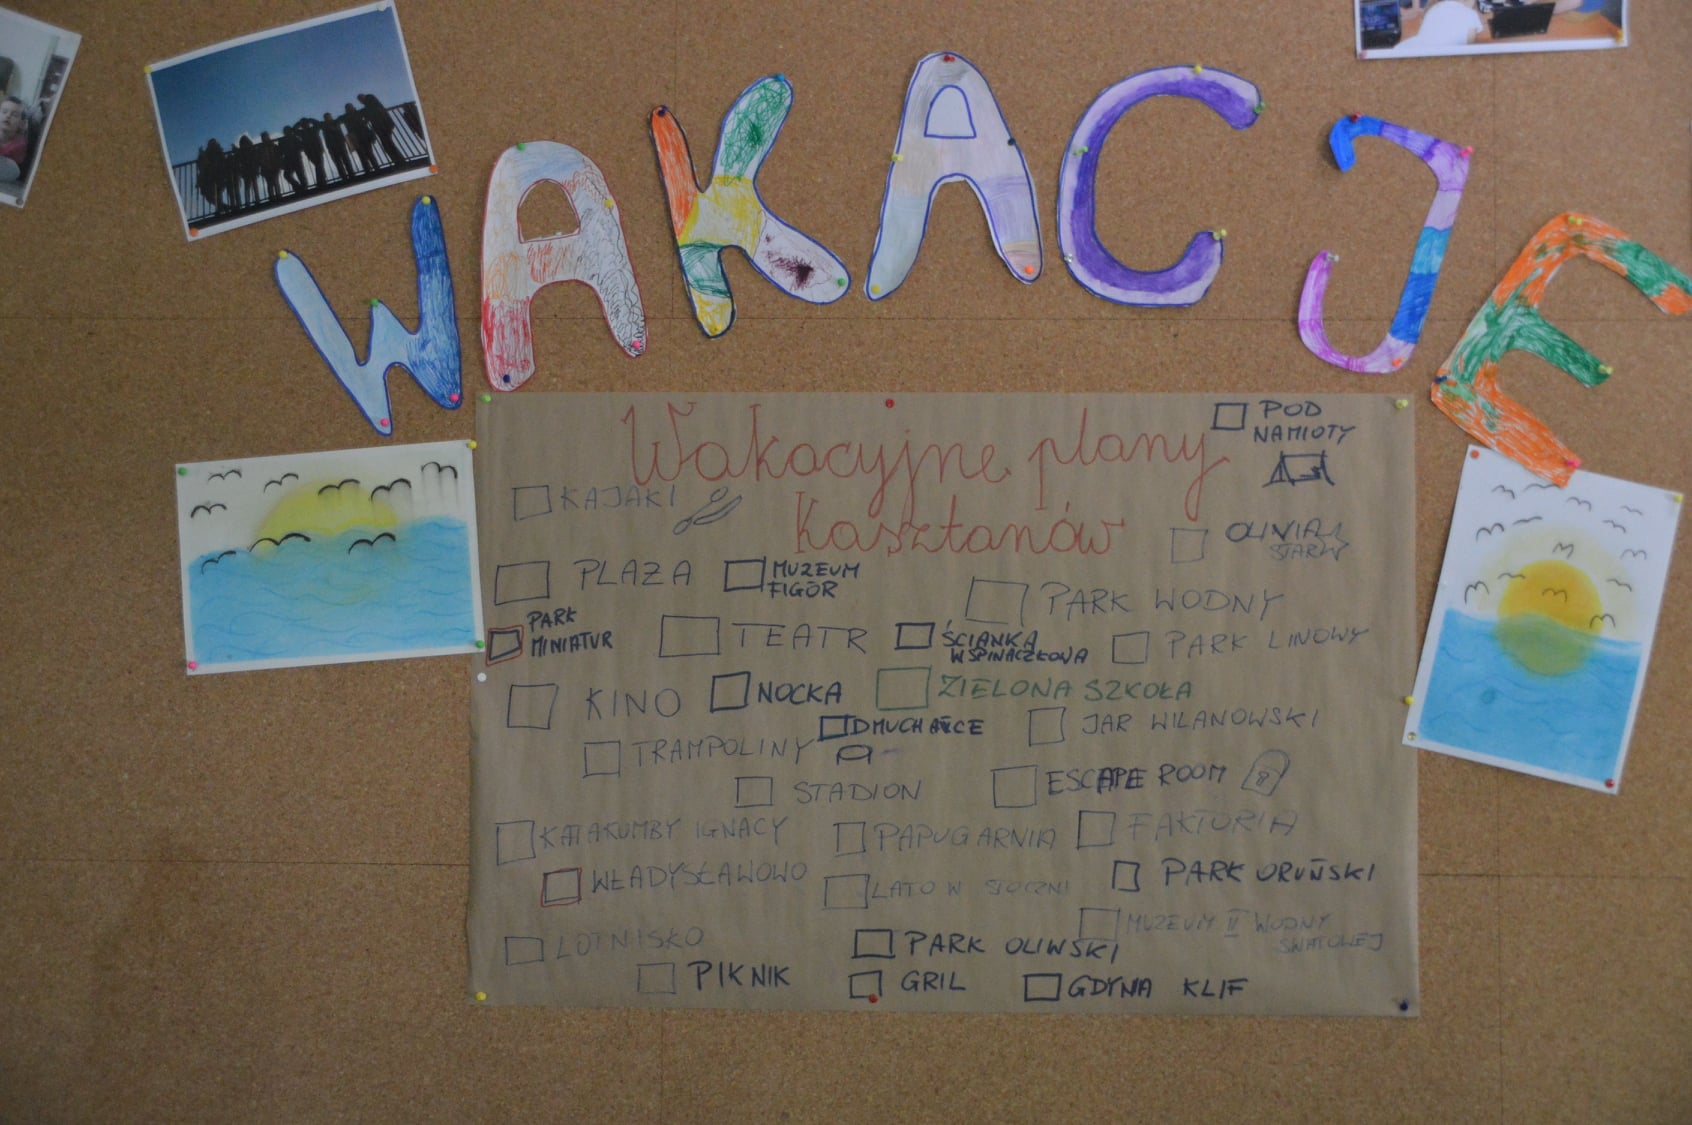 WAKACJE
Wakacyjne plany
Kasztanów
POD
NAMIOTY
KAJAKI
OLIVIA
STAR
PLAŻA
MUZEUM
FIGÓR
PARK WODNY
PARK
MINIATUR
TEATR
ŚCIANKA
WSPINACZKOWA
PARK LINOWY
KINO
NOCKA
ZIELONA SZKOŁA
DMUCHAŃCE
JAR WILANOWSKI
TRAMPOLINY
STADION
ESCAPE ROOM
KATAKUMBY IGNACY
PAPUGARNIA
FAKTORIA
WŁADYSŁAWOWO
LATO W STOCZNI
PARK ORUŃSKI
LOTNISKO
PARK OLIWSKI
MUZEUM II WODNY
ŚWIATOWEJ
PIKNIK
GRIL
GDYNIA KLIF